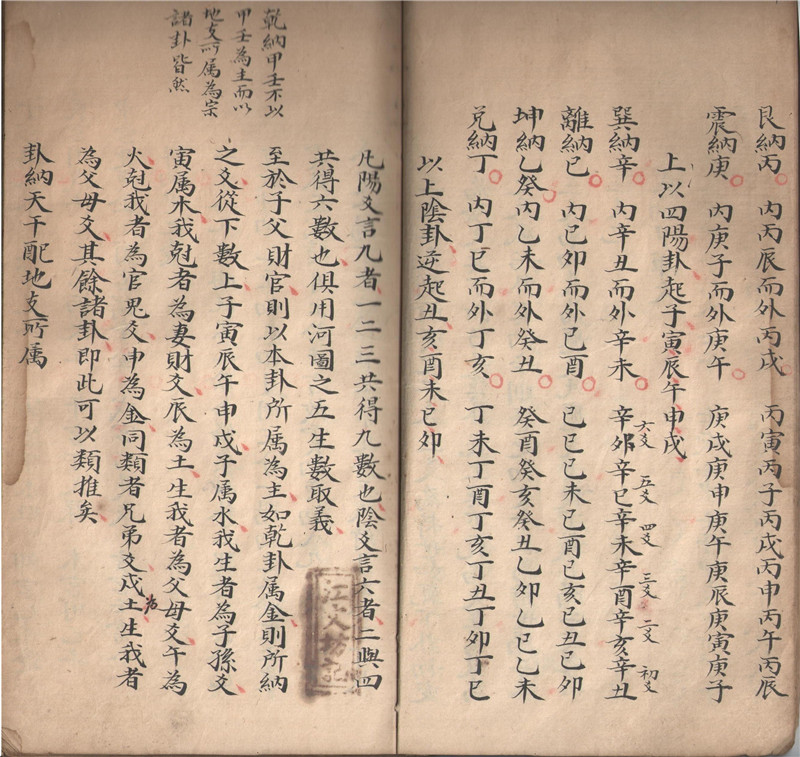 艮納丙 内丙辰而外丙戌 丙寅丙子丙戌丙申丙午丙辰
震納庚 内庚子而外庚午 庚戌庚申庚午庚辰庚寅庚子
上以四陽卦起子寅辰午申戌
巽納辛 内辛丑而外辛未 辛卯辛巳辛未辛酉辛亥辛丑
六爻 五爻 四爻 三爻 二爻 初爻
離納巳 内巳卯而外巳酉 巳巳巳未巳酉巳亥巳丑巳卯
坤納乙癸内乙未而外癸丑 癸酉癸亥癸丑乙卯乙巳乙未
兑納丁 内丁巳而外丁亥 丁未丁酉丁亥丁丑丁卯丁巳
以上陰卦逆起丑亥酉未巳卯
乾納甲壬不以
甲壬為主而以
地支所属為宗
諸卦皆然
凢陽爻言九者一二三共得九數也陰爻言六者二與四
共得六數也俱用河圖之五生數取義
至於子父財官則以本卦所属為主如乾卦属金則所納
之爻從下數上子寅辰午申戌子属水我生者為子孫爻
寅属木我尅者為妻財爻辰為土生我者為父母爻午為
火尅我者為官鬼爻申為金同類者兄弟爻戌為土生我者
為父母爻其餘諸卦即此可以類推矣
卦納天干配地支所属